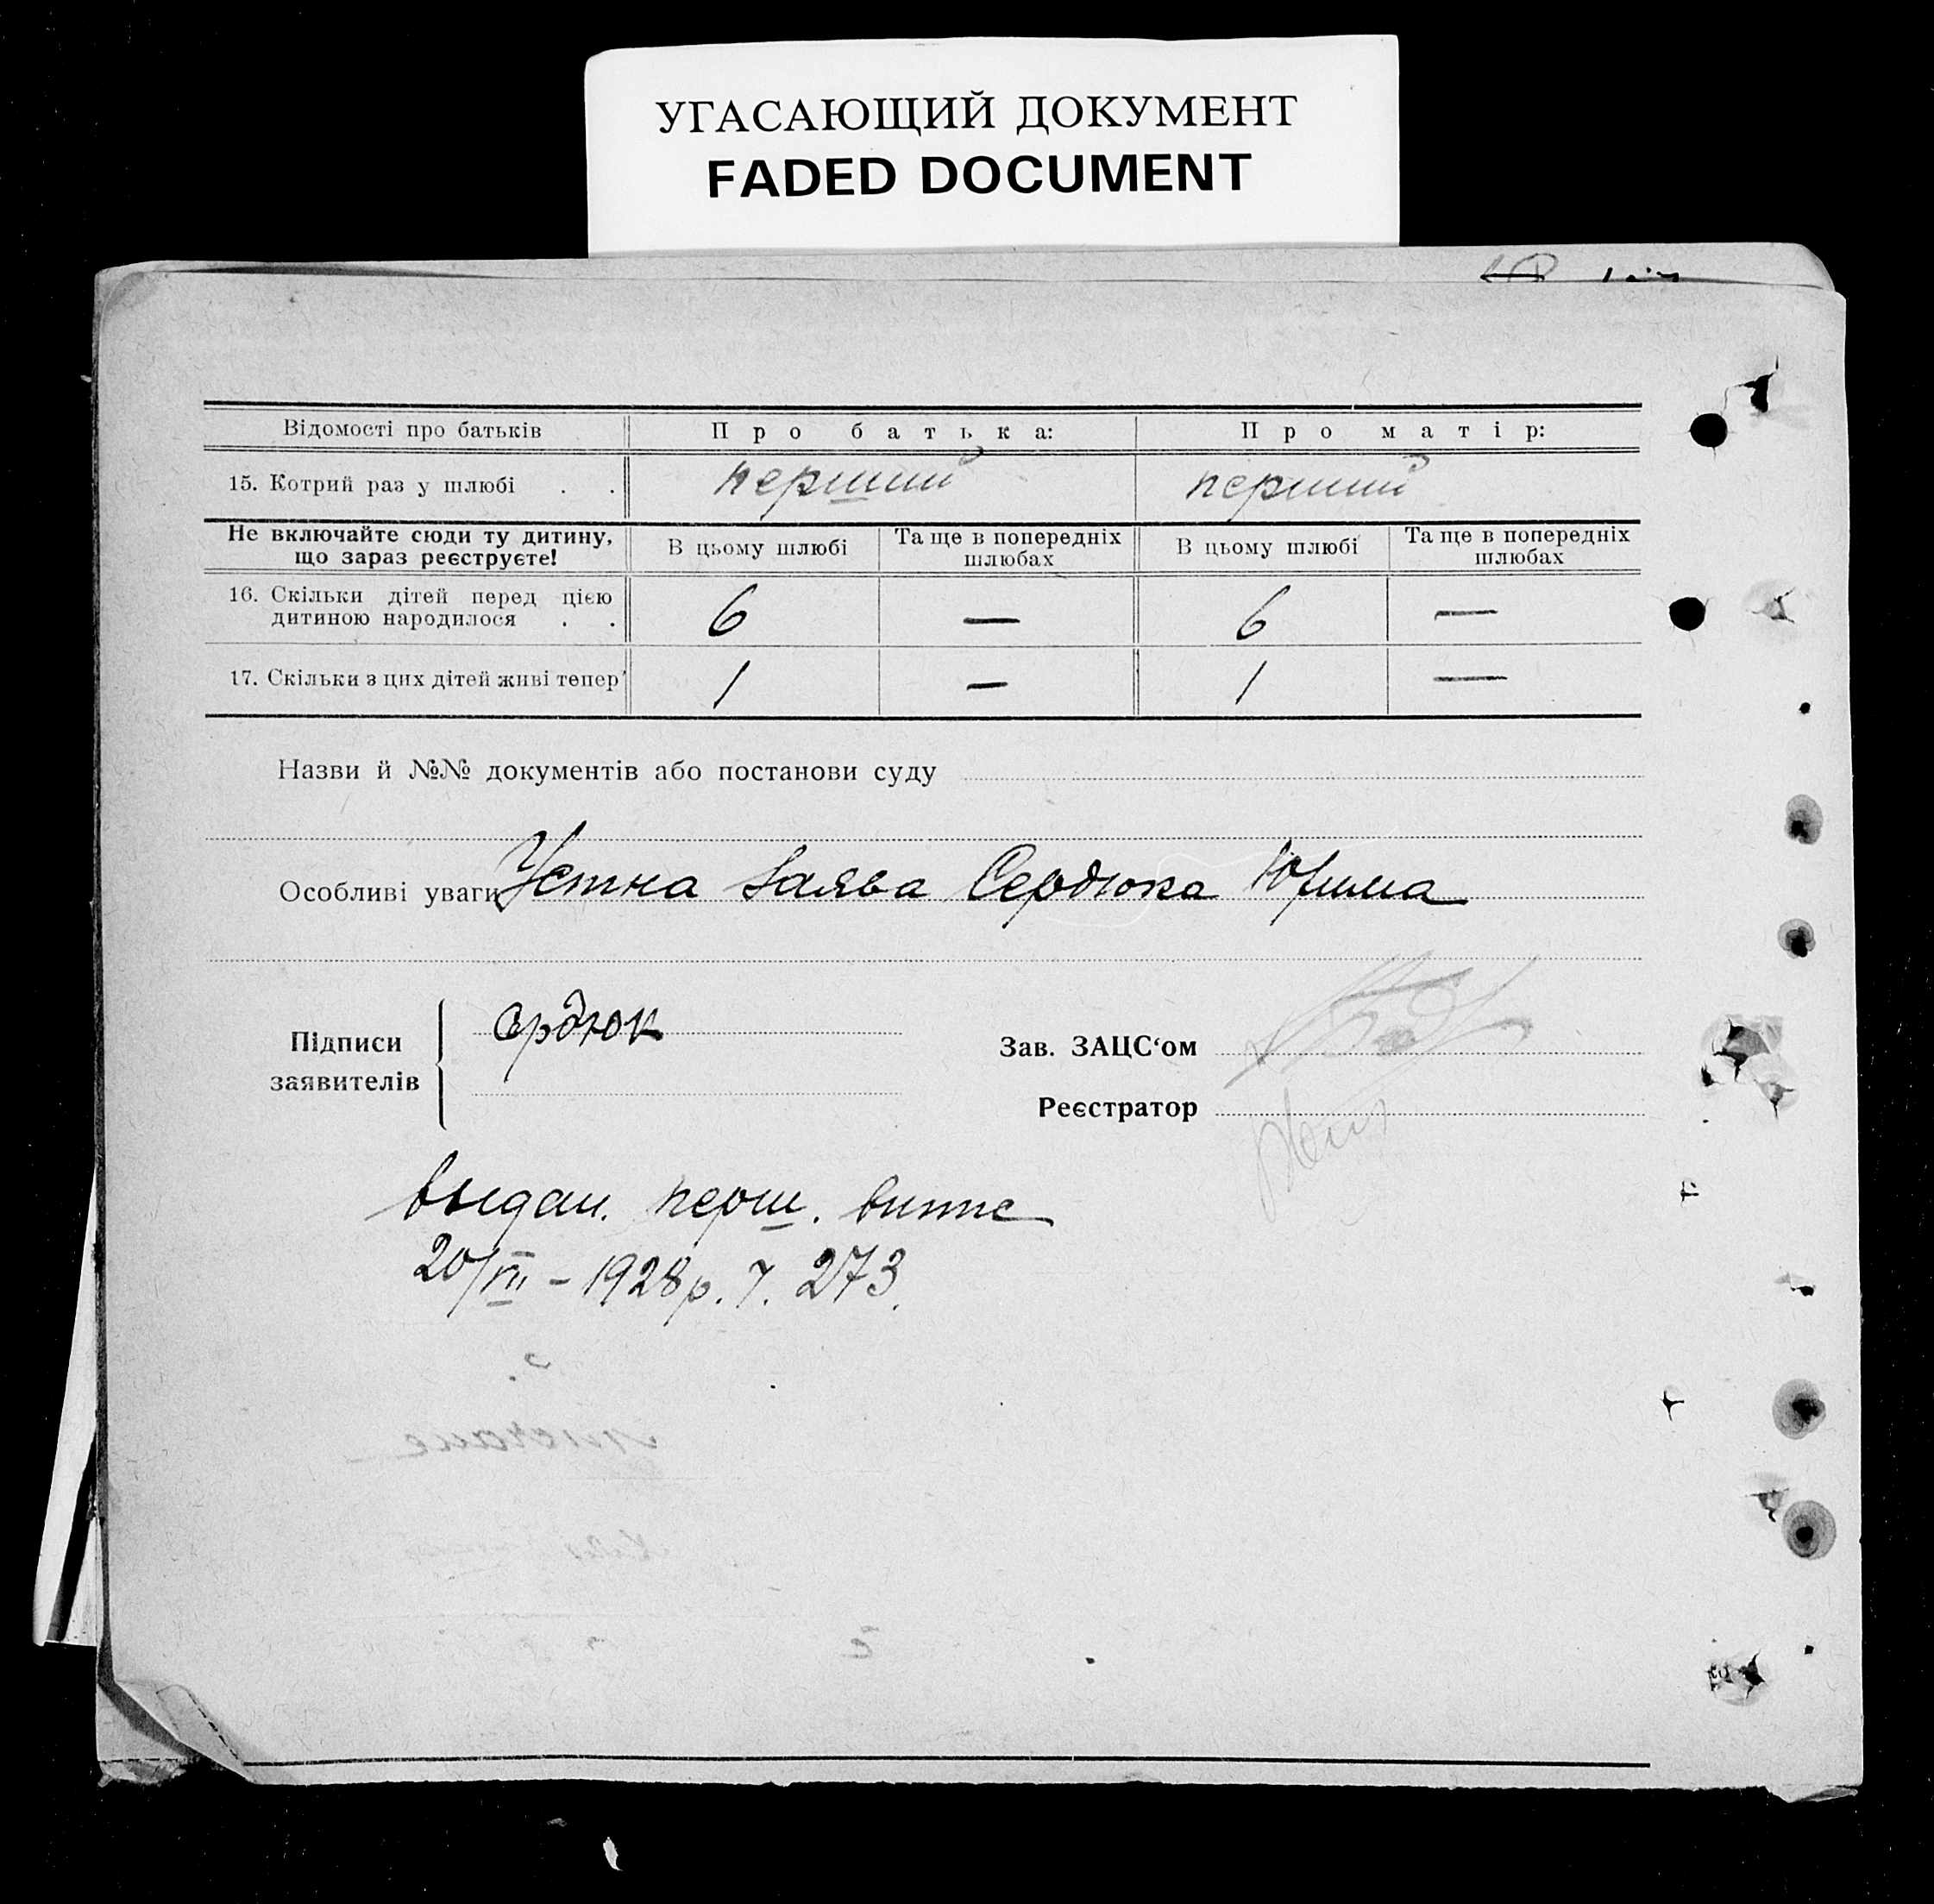 УГАСАЮЩИЙ ДОКУМЕНТ
FADED DOCUMENT
Відомості про батьків Про батька: Про матір:
15. Котрий раз у шлюбі . . перший перший
Не включайте сюди ту дитину, що зараз реєструєте! В цьому шлюбі Та ще в попередніх шлюбах В цьому шлюбі Та ще в попередніх шлюбах
16. Скільки дітей перед цією дитиною народилося . . 6 — 6 —
17. Скільки з цих дітей живі тепер 1 — 1 —
Назви й №№ документів або постанови суду
Особливі уваги Устна заява Сердюка
Підписи заявителів Сердюк
Зав. ЗАЦС‘ом
Реєстратор
выдан. перш. витяг
20/VII – 1928 р. ч. 273.